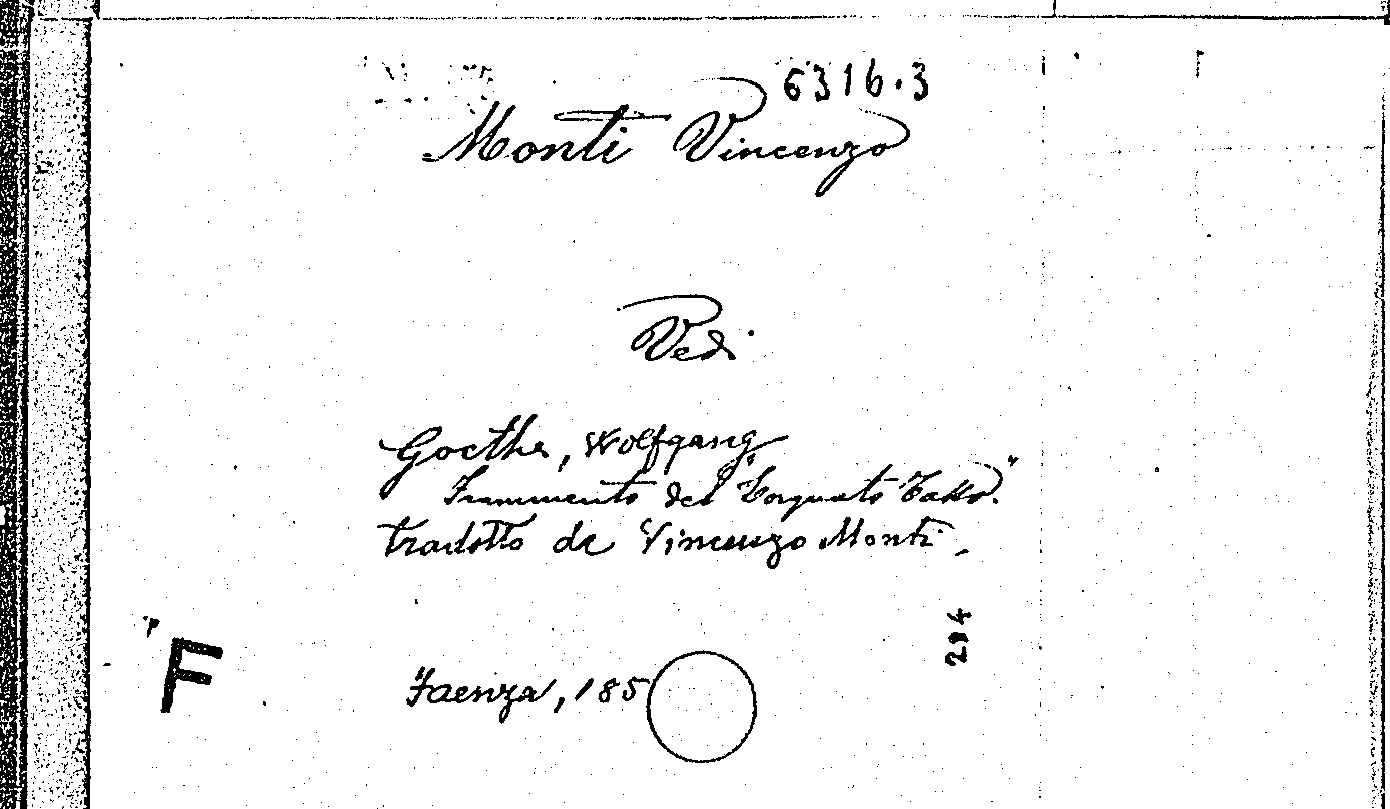 6316.3
Monti Vincenzo
Vedi
Goethe, Wolfgang
Frammento del "Torquato Tasso"
tradotto da Vincenzo Monti.
294
F
Faenza, 185